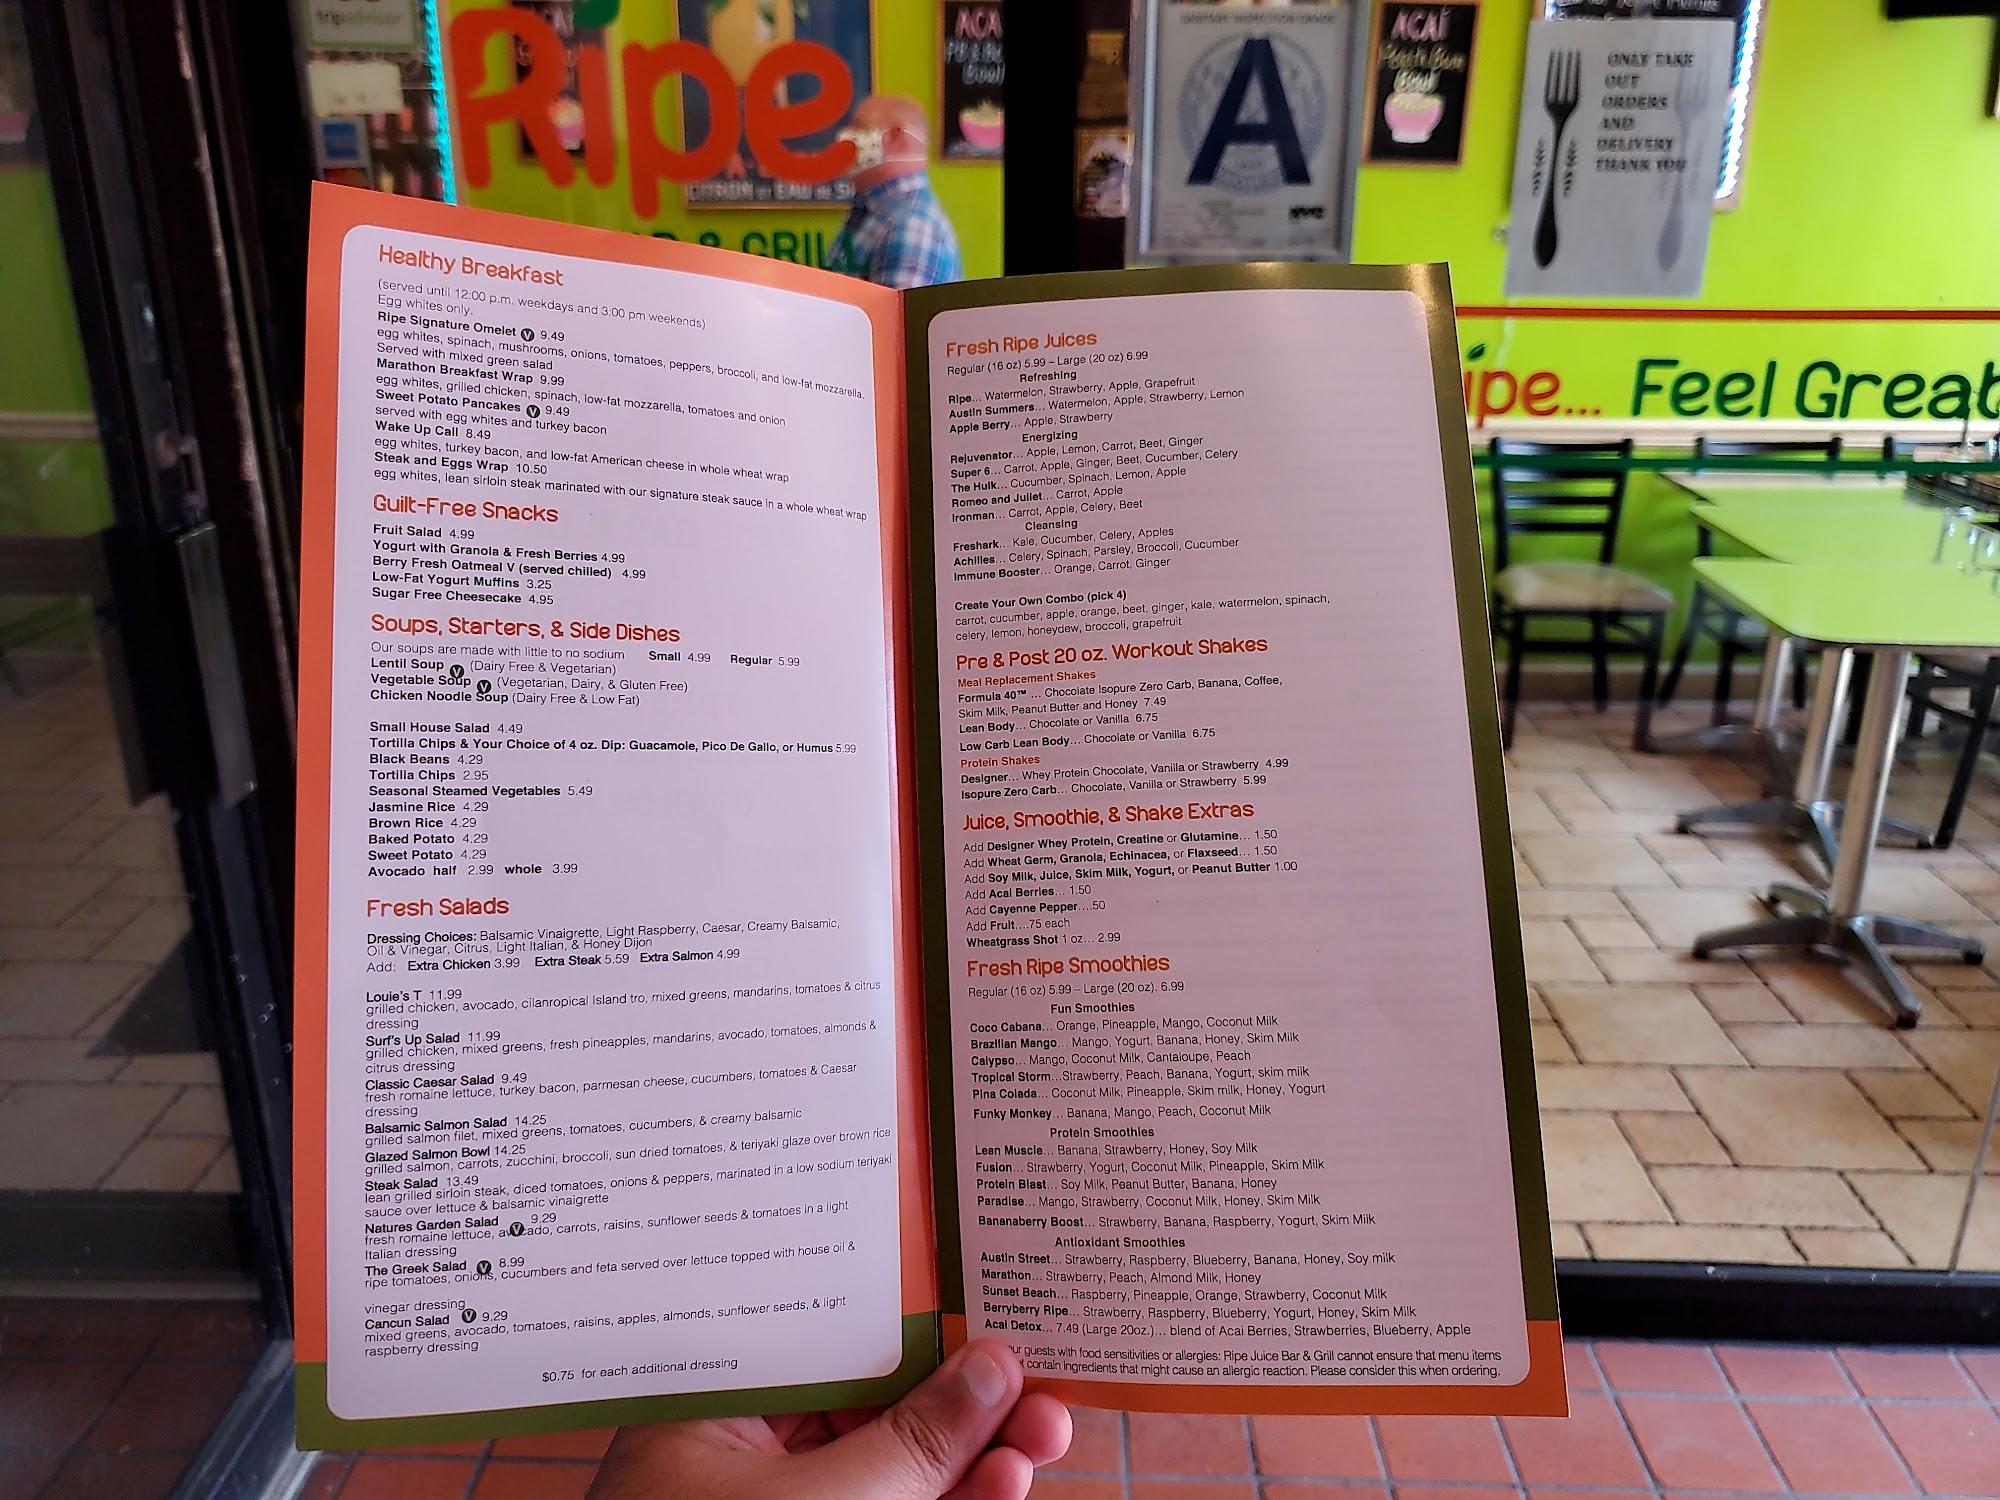 tripadvisor
Ripe
& GRILL
CITRON et EAU de S
ACAI
Bowl
SANITARY INSPECTION GRADE
A
NYC
ACAI
Bowl
ONLY TAKE
OUT
ORDERS
AND
DELIVERY
THANK YOU
ipe... Feel Great
Healthy Breakfast
(served until 12:00 p.m. weekdays and 3:00 pm weekends)
Egg whites only.
Ripe Signature Omelet V 9.49
egg whites, spinach, mushrooms, onions, tomatoes, peppers, broccoli, and low-fat mozzarella.
Served with mixed green salad
Marathon Breakfast Wrap 9.99
egg whites, grilled chicken, spinach, low-fat mozzarella, tomatoes and onion
Sweet Potato Pancakes V 9.49
served with egg whites and turkey bacon
Wake Up Call 8.49
egg whites, turkey bacon, and low-fat American cheese in whole wheat wrap
Steak and Eggs Wrap 10.50
egg whites, lean sirloin steak marinated with our signature steak sauce in a whole wheat wrap
Guilt-Free Snacks
Fruit Salad 4.99
Yogurt with Granola & Fresh Berries 4.99
Berry Fresh Oatmeal V (served chilled) 4.99
Low-Fat Yogurt Muffins 3.25
Sugar Free Cheesecake 4.95
Soups, Starters, & Side Dishes
Our soups are made with little to no sodium Small 4.99 Regular 5.99
Lentil Soup V (Dairy Free & Vegetarian)
Vegetable Soup V (Vegetarian, Dairy, & Gluten Free)
Chicken Noodle Soup (Dairy Free & Low Fat)
Small House Salad 4.49
Tortilla Chips & Your Choice of 4 oz. Dip: Guacamole, Pico De Gallo, or Humus 5.99
Black Beans 4.29
Tortilla Chips 2.95
Seasonal Steamed Vegetables 5.49
Jasmine Rice 4.29
Brown Rice 4.29
Baked Potato 4.29
Sweet Potato 4.29
Avocado half 2.99 whole 3.99
Fresh Salads
Dressing Choices: Balsamic Vinaigrette, Light Raspberry, Caesar, Creamy Balsamic,
Oil & Vinegar, Citrus, Light Italian, & Honey Dijon
Add: Extra Chicken 3.99 Extra Steak 5.59 Extra Salmon 4.99
Louie's T 11.99
grilled chicken, avocado, cilanropical Island tro, mixed greens, mandarins, tomatoes & citrus
dressing
Surf's Up Salad 11.99
grilled chicken, mixed greens, fresh pineapples, mandarins, avocado, tomatoes, almonds &
citrus dressing
Classic Caesar Salad 9.49
fresh romaine lettuce, turkey bacon, parmesan cheese, cucumbers, tomatoes & Caesar
dressing
Balsamic Salmon Salad 14.25
grilled salmon filet, mixed greens, tomatoes, cucumbers, & creamy balsamic
Glazed Salmon Bowl 14.25
grilled salmon, carrots, zucchini, broccoli, sun dried tomatoes, & teriyaki glaze over brown rice
Steak Salad 13.49
lean grilled sirloin steak, diced tomatoes, onions & peppers, marinated in a low sodium teriyaki
sauce over lettuce & balsamic vinaigrette
Natures Garden Salad V 9.29
fresh romaine lettuce, avocado, carrots, raisins, sunflower seeds & tomatoes in a light
Italian dressing
The Greek Salad V 8.99
ripe tomatoes, onions, cucumbers and feta served over lettuce topped with house oil &
vinegar dressing
Cancun Salad V 9.29
mixed greens, avocado, tomatoes, raisins, apples, almonds, sunflower seeds, & light
raspberry dressing
$0.75 for each additional dressing
Fresh Ripe Juices
Regular (16 oz) 5.99 – Large (20 oz) 6.99
Refreshing
Ripe... Watermelon, Strawberry, Apple, Grapefruit
Austin Summers... Watermelon, Apple, Strawberry, Lemon
Apple Berry... Apple, Strawberry
Energizing
Rejuvenator... Apple, Lemon, Carrot, Beet, Ginger
Super 6... Carrot, Apple, Ginger, Beet, Cucumber, Celery
The Hulk... Cucumber, Spinach, Lemon, Apple
Romeo and Juliet... Carrot, Apple
Ironman... Carrot, Apple, Celery, Beet
Cleansing
Freshark... Kale, Cucumber, Celery, Apples
Achilles... Celery, Spinach, Parsley, Broccoli, Cucumber
Immune Booster... Orange, Carrot, Ginger
Create Your Own Combo (pick 4)
carrot, cucumber, apple, orange, beet, ginger, kale, watermelon, spinach,
celery, lemon, honeydew, broccoli, grapefruit
Pre & Post 20 oz. Workout Shakes
Meal Replacement Shakes
Formula 40™ ... Chocolate Isopure Zero Carb, Banana, Coffee,
Skim Milk, Peanut Butter and Honey 7.49
Lean Body... Chocolate or Vanilla 6.75
Low Carb Lean Body... Chocolate or Vanilla 6.75
Protein Shakes
Designer... Whey Protein Chocolate, Vanilla or Strawberry 4.99
Isopure Zero Carb... Chocolate, Vanilla or Strawberry 5.99
Juice, Smoothie, & Shake Extras
Add Designer Whey Protein, Creatine or Glutamine... 1.50
Add Wheat Germ, Granola, Echinacea, or Flaxseed... 1.50
Add Soy Milk, Juice, Skim Milk, Yogurt, or Peanut Butter 1.00
Add Acai Berries... 1.50
Add Cayenne Pepper....50
Add Fruit....75 each
Wheatgrass Shot 1 oz... 2.99
Fresh Ripe Smoothies
Regular (16 oz) 5.99 – Large (20 oz). 6.99
Fun Smoothies
Coco Cabana... Orange, Pineapple, Mango, Coconut Milk
Brazilian Mango... Mango, Yogurt, Banana, Honey, Skim Milk
Calypso... Mango, Coconut Milk, Cantaloupe, Peach
Tropical Storm...Strawberry, Peach, Banana, Yogurt, skim milk
Pina Colada... Coconut Milk, Pineapple, Skim milk, Honey, Yogurt
Funky Monkey... Banana, Mango, Peach, Coconut Milk
Protein Smoothies
Lean Muscle... Banana, Strawberry, Honey, Soy Milk
Fusion... Strawberry, Yogurt, Coconut Milk, Pineapple, Skim Milk
Protein Blast... Soy Milk, Peanut Butter, Banana, Honey
Paradise... Mango, Strawberry, Coconut Milk, Honey, Skim Milk
Bananaberry Boost... Strawberry, Banana, Raspberry, Yogurt, Skim Milk
Antioxidant Smoothies
Austin Street... Strawberry, Raspberry, Blueberry, Banana, Honey, Soy milk
Marathon... Strawberry, Peach, Almond Milk, Honey
Sunset Beach... Raspberry, Pineapple, Orange, Strawberry, Coconut Milk
Berryberry Ripe... Strawberry, Raspberry, Blueberry, Yogurt, Honey, Skim Milk
Acai Detox... 7.49 (Large 20oz.)... blend of Acai Berries, Strawberries, Blueberry, Apple
ur guests with food sensitivities or allergies: Ripe Juice Bar & Grill cannot ensure that menu items
t contain Ingredients that might cause an allergic reaction. Please consider this when ordering.